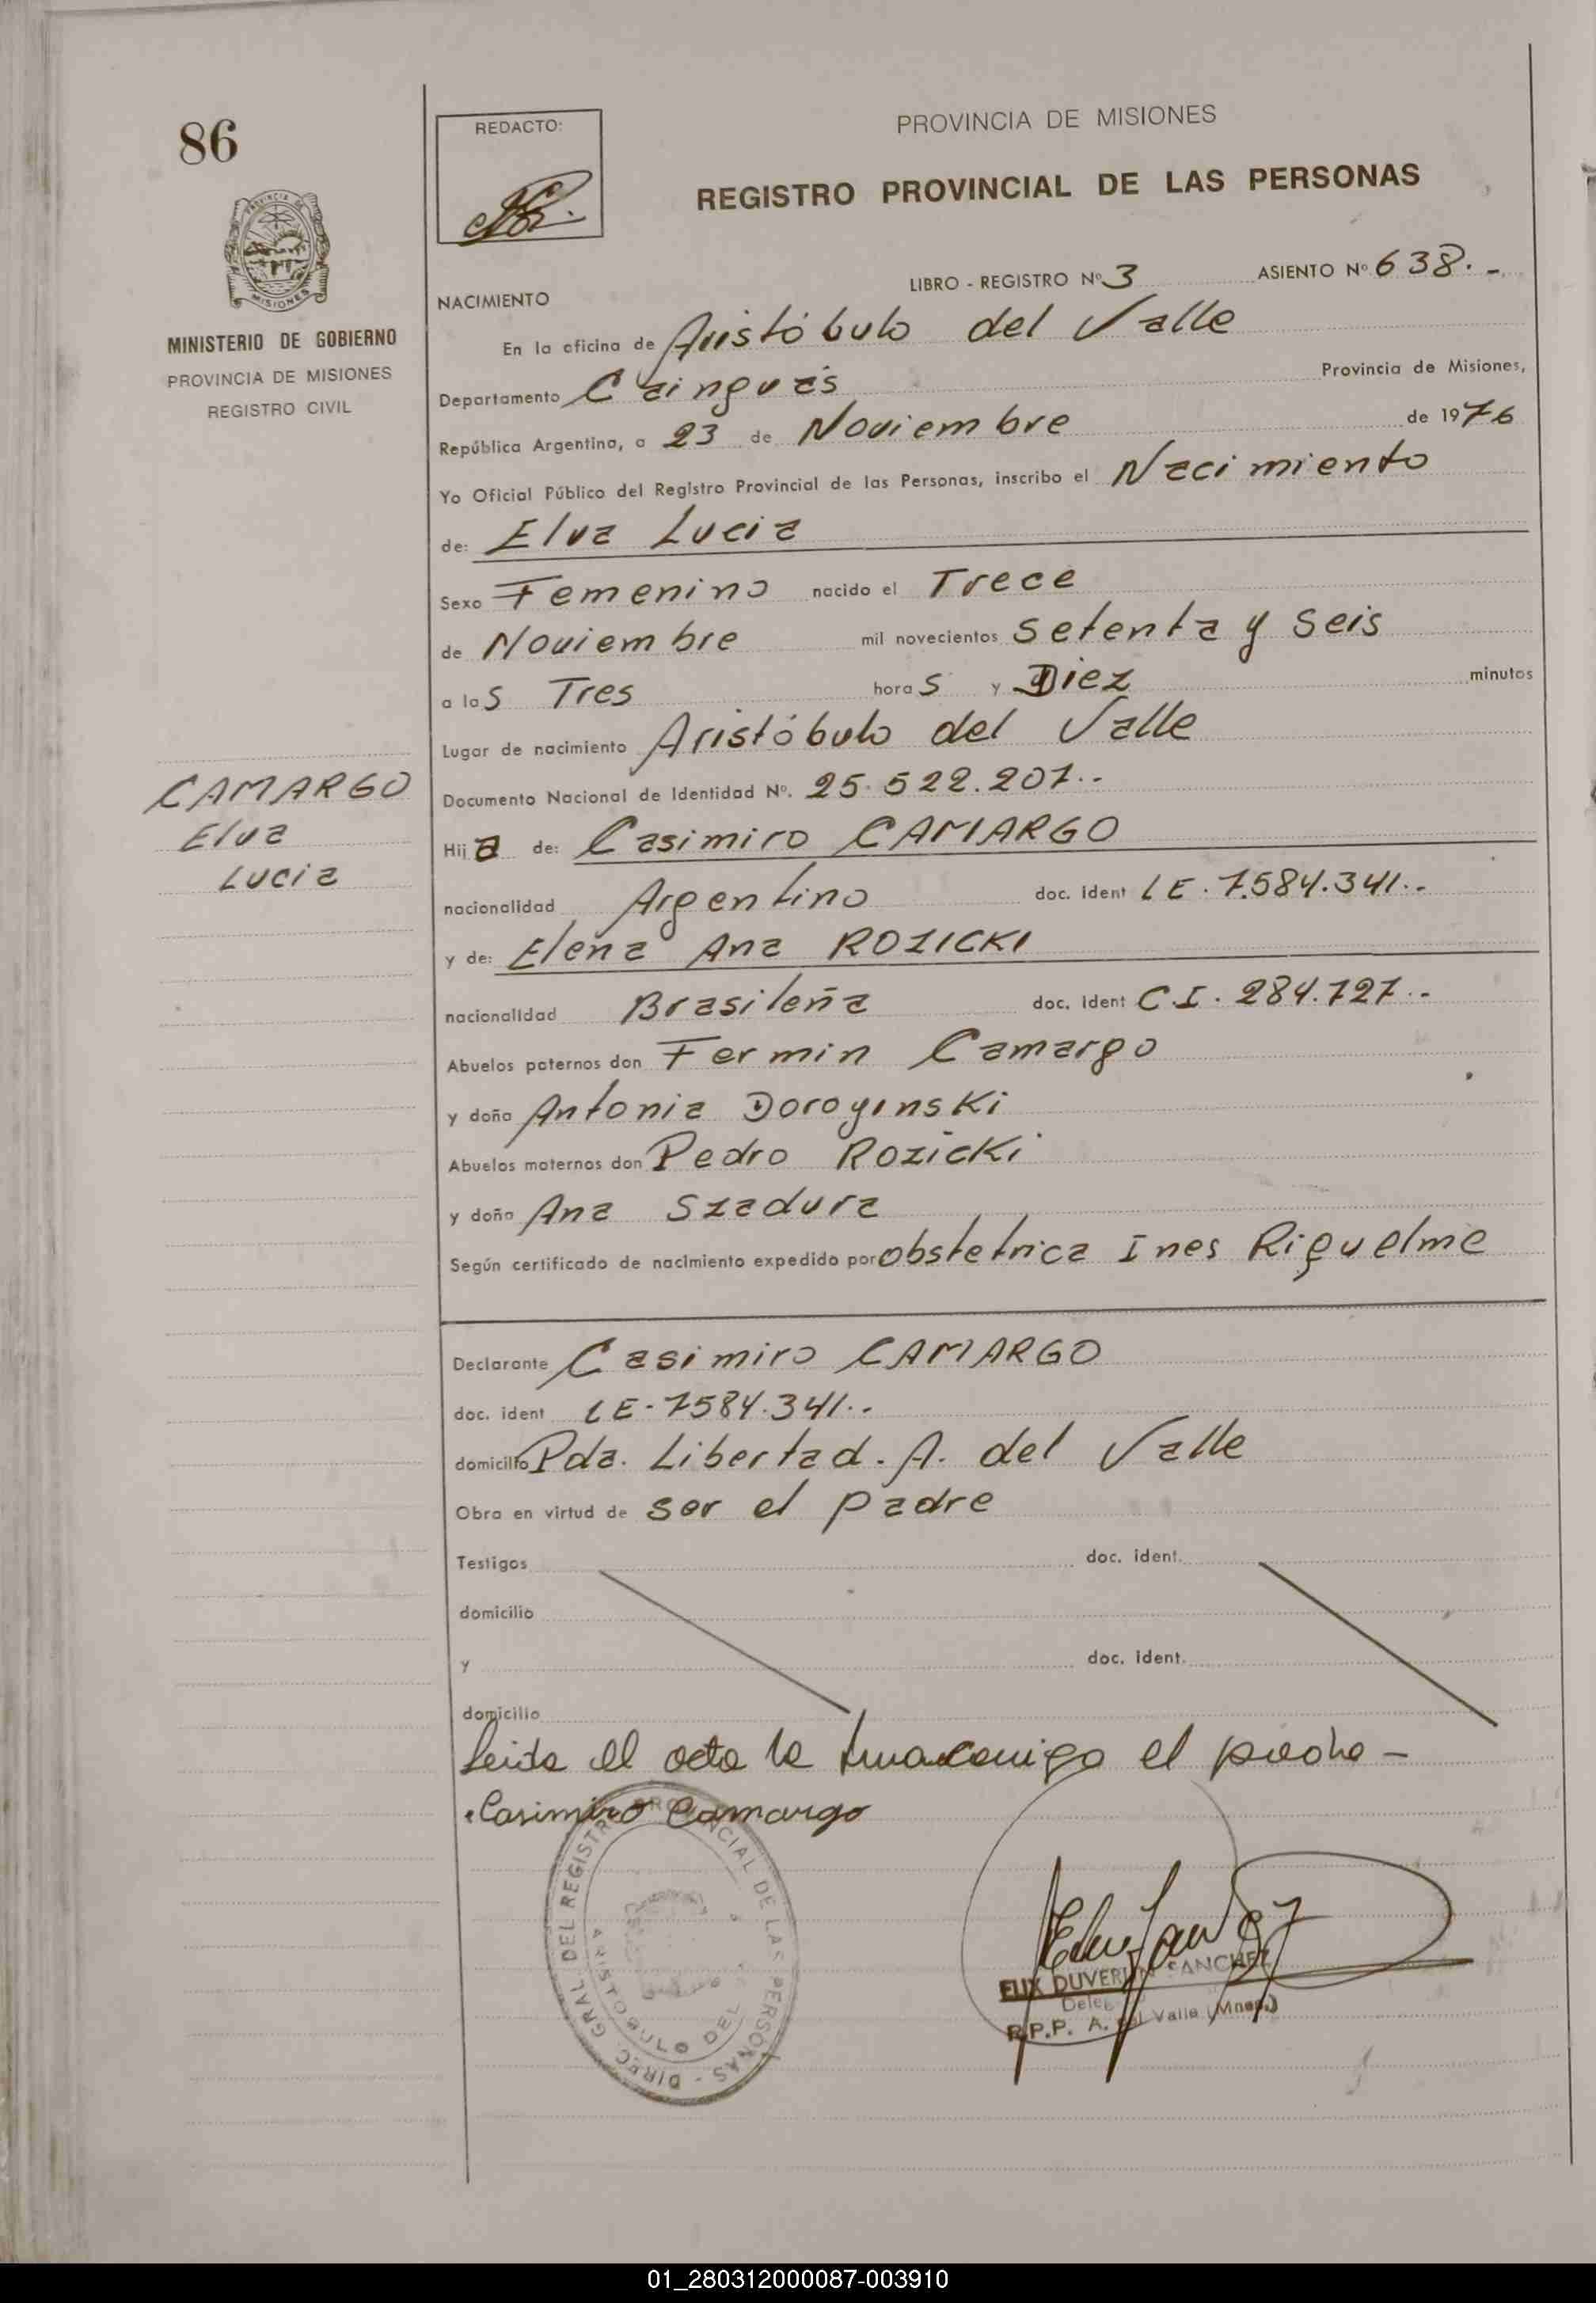 86
REDACTO:
PROVINCIA DE MISIONES
REGISTRO PROVINCIAL DE LAS PERSONAS
LIBRO - REGISTRO Nº 3 ASIENTO Nº 638.-
NACIMIENTO
MINISTERIO DE GOBIERNO
PROVINCIA DE MISIONES
REGISTRO CIVIL
En la oficina de Aristóbulo del Valle
Departamento Cainguás Provincia de Misiones,
República Argentina, a 23 de Noviembre de 1976
Yo Oficial Público del Registro Provincial de las Personas, inscribo el Nacimiento
de: Elva Lucia
Sexo Femenino nacido el Trece
de Noviembre mil novecientos setenta y seis
a las Tres horas y Diez minutos
Lugar de nacimiento Aristóbulo del Valle
Documento Nacional de Identidad Nº. 25.522.207.-
CAMARGO
Elva
Lucia
Hija de: Casimiro CAMARGO
nacionalidad Argentino doc. ident LE. 7.584.341.-
y de: Elena Ana ROZICKI
nacionalidad Brasileña doc. ident C.I. 284.727.-
Abuelos paternos don Fermin Camargo
y doña Antonia Doroginski
Abuelos maternos don Pedro Rozicki
y doña Ana Szadura
Según certificado de nacimiento expedido por obstetrica Ines Riquelme
Declarante Casimiro CAMARGO
doc. ident LE-7584.341.-
domicilio Pda. Libertad. A. del Valle
Obra en virtud de ser el padre
Testigos doc. ident.
domicilio
y doc. ident.
domicilio
Leida el acta la firma conmigo el padre -
Casimiro Camargo
DIREC. GRAL DEL REGISTRO PROVINCIAL DE LAS PERSONAS -
ARISTOBULO DEL
SANCHEZ
R.P.P. A. del Valle (Mnes.)
01_280312000087-003910